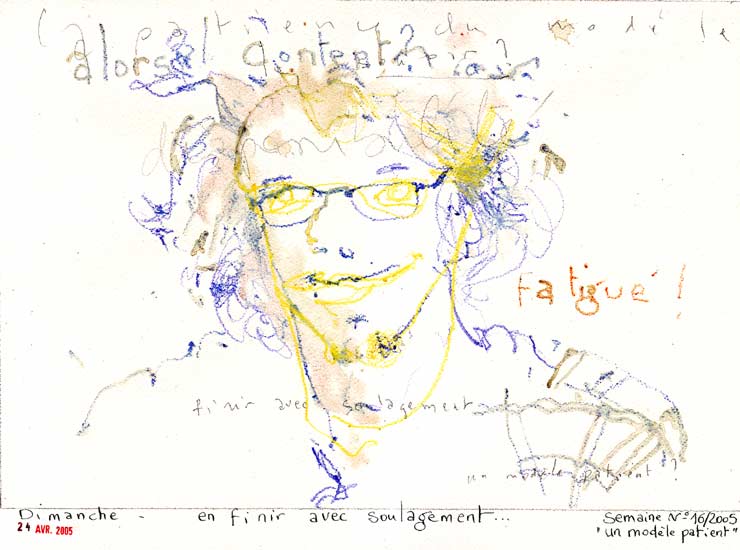 ( patience du modèle
alors! content?
fatigué!
finir avec soulagement
un modèle patient?
Dimanche - en finir avec soulagement...
24 AVR. 2005
Semaine N° 16/2005
"un modèle patient"